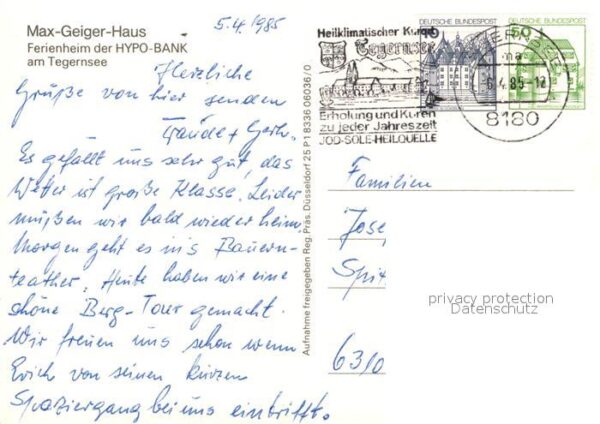 Max-Geiger-Haus
Ferienheim der HYPO-BANK
am Tegernsee
5.4.1985
Herzliche
Grüße von hier senden
Traude + Gerh.
Es gefällt uns sehr gut, das
Wetter ist große Klasse. Leider
müßen wir bald wieder heim.
Morgen geht es ins Bauern-
teather. Heute haben wir eine
schöne Berg-Tour gemacht.
Wir freuen uns schon wenn
Erich von seinen kurzen
Spaziergang bei uns eintrifft.
Aufnahme freigegeben Reg. Präs. Düsseldorf 25 P 1 8336 06036/0
Heilklimatischer Kurort
Tegernsee
Erholung und Kuren
zu jeder Jahreszeit
JOD-SOLE-HEILQUELLE
DEUTSCHE BUNDESPOST
10
DEUTSCHE BUNDESPOST
50
TEGERNSEE
ma
-6.4.85-12
8180
Familien
Jose
Spit
6310
privacy protection
Datenschutz